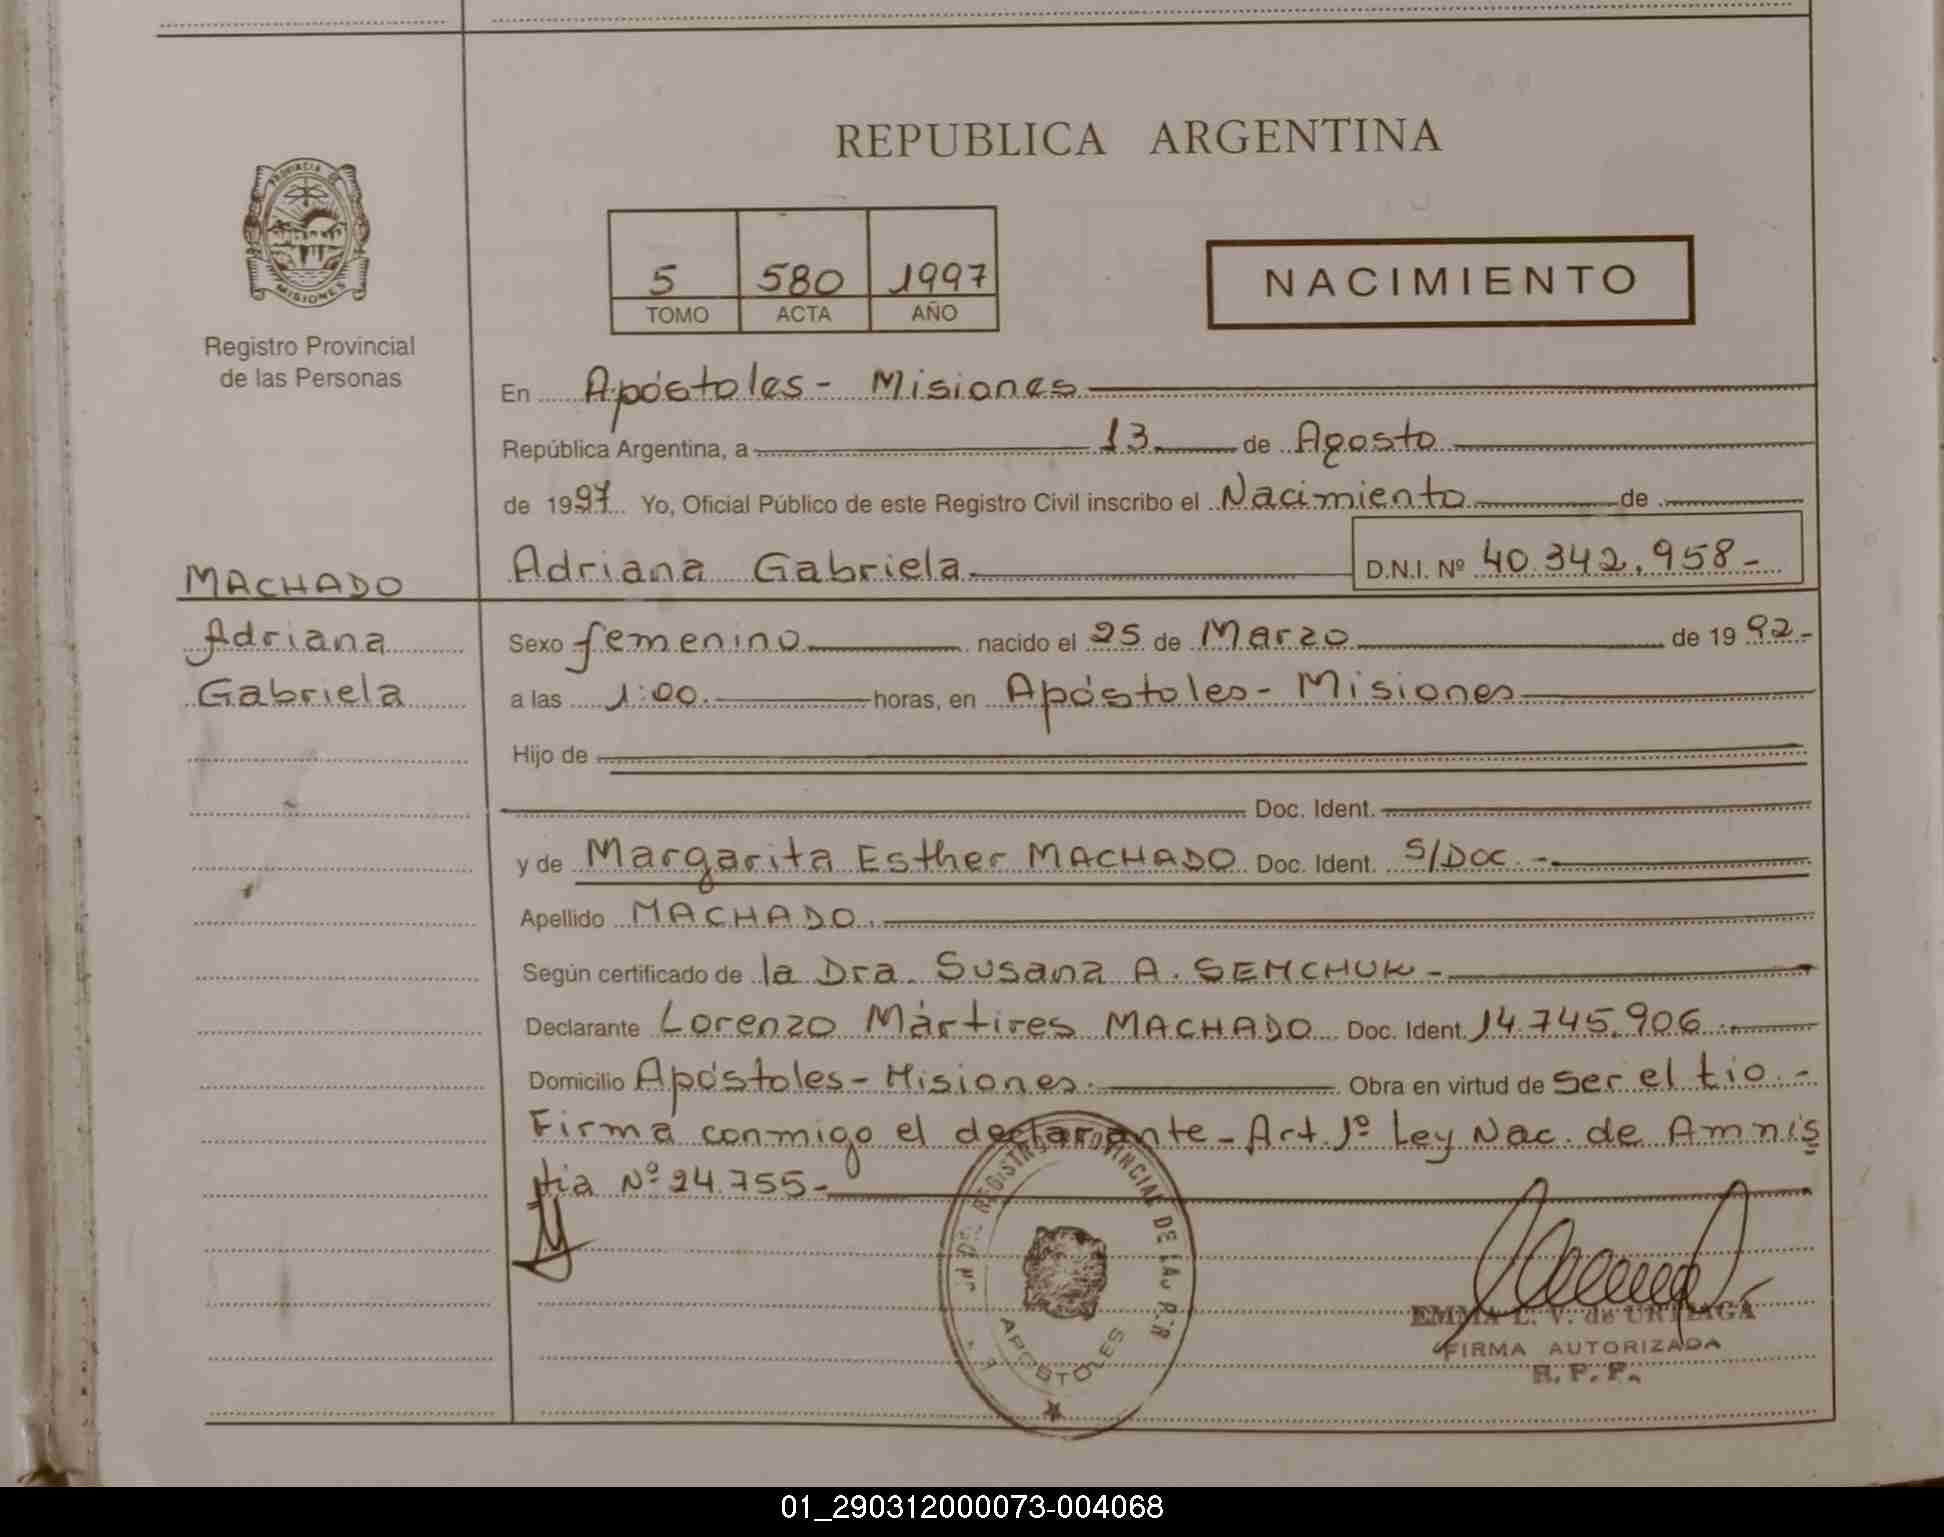 REPUBLICA ARGENTINA
PROVINCIA DE
MISIONES
Registro Provincial
de las Personas
5 580 1997
TOMO ACTA AÑO
NACIMIENTO
En Apóstoles - Misiones
República Argentina, a 13 de Agosto
de 1997 Yo, Oficial Público de este Registro Civil inscribo el Nacimiento de
MACHADO
Adriana
Gabriela
Adriana Gabriela D.N.I. Nº 40.342.958-
Sexo femenino nacido el 25 de Marzo de 1992-
a las 1:00. horas, en Apóstoles - Misiones
Hijo de
Doc. Ident.
y de Margarita Esther MACHADO Doc. Ident. S/DOC.-
Apellido MACHADO.
Según certificado de la Dra. Susana A. SEMCHUK-
Declarante Lorenzo Mártires MACHADO Doc. Ident. 14.745.906.
Domicilio Apóstoles - Misiones. Obra en virtud de ser el tio.-
Firma conmigo el declarante - Art. 1º Ley Nac. de Amnis
tia Nº 24.755-
REGISTRO PROVINCIAL DE LAS
APOSTOLES
EMMA L. V. de URTIAGA
FIRMA AUTORIZADA
R. P. P.
01_290312000073-004068